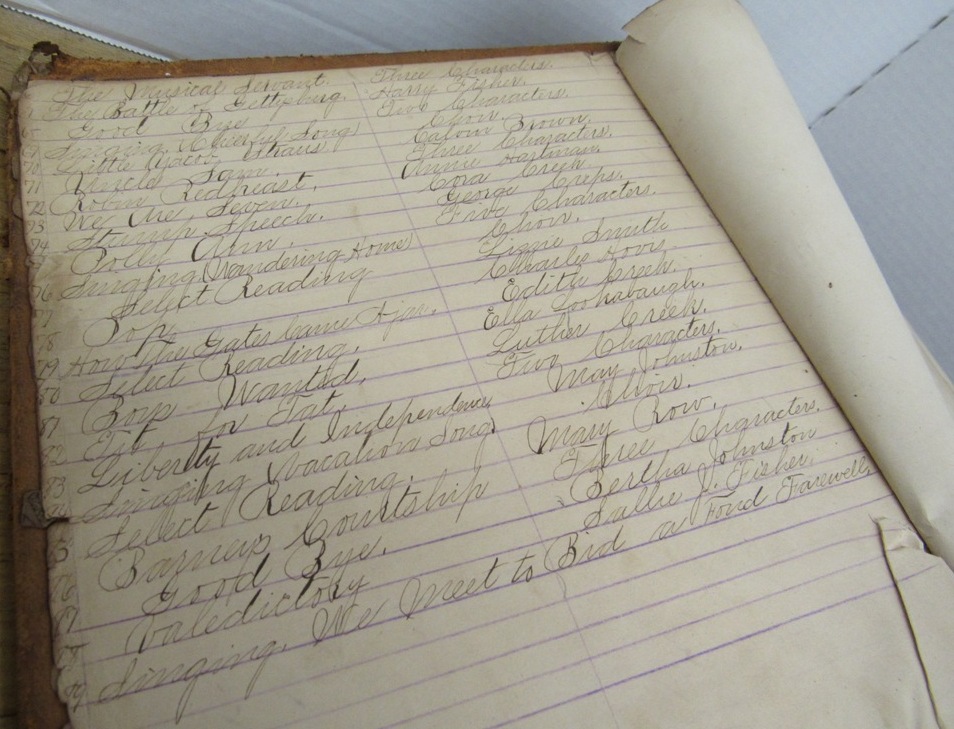 The Musical Servant. Three Characters.
The Battle of Gettysburg. Harry Fisher.
Good Bye Two Characters.
Singing, (Cheerful Song) Choir.
70 Little Yacob Straus. Calvin Brown.
71 Uncle Sam. Three Characters.
72 Robin Redbreast. Annie Hartman.
73 We Are Seven. Cora Creek.
74 Stump Speech. George Creps.
Polly Ann. Five Characters.
76 Singing (Wandering Home) Choir.
77 Select Reading Lizzie Smith
78 Pop Charlie Hovis
79 How the Gates Came Ajar. Edith Creek.
80 Select Reading. Ella Lookabaugh.
81 Boys Wanted. Luther Creek.
82 Tit, for Tat. Five Characters.
83 Liberty and Independence May Johnston.
Singing Vacation Song. Choir.
Select Reading. Mary Row.
86 Barneys Courtship Three Characters.
87 Good Bye. Bertha Johnston
88 Valedictory Sallie J. Fisher.
89 Singing. We Meet to Bid a Fond Farewell.